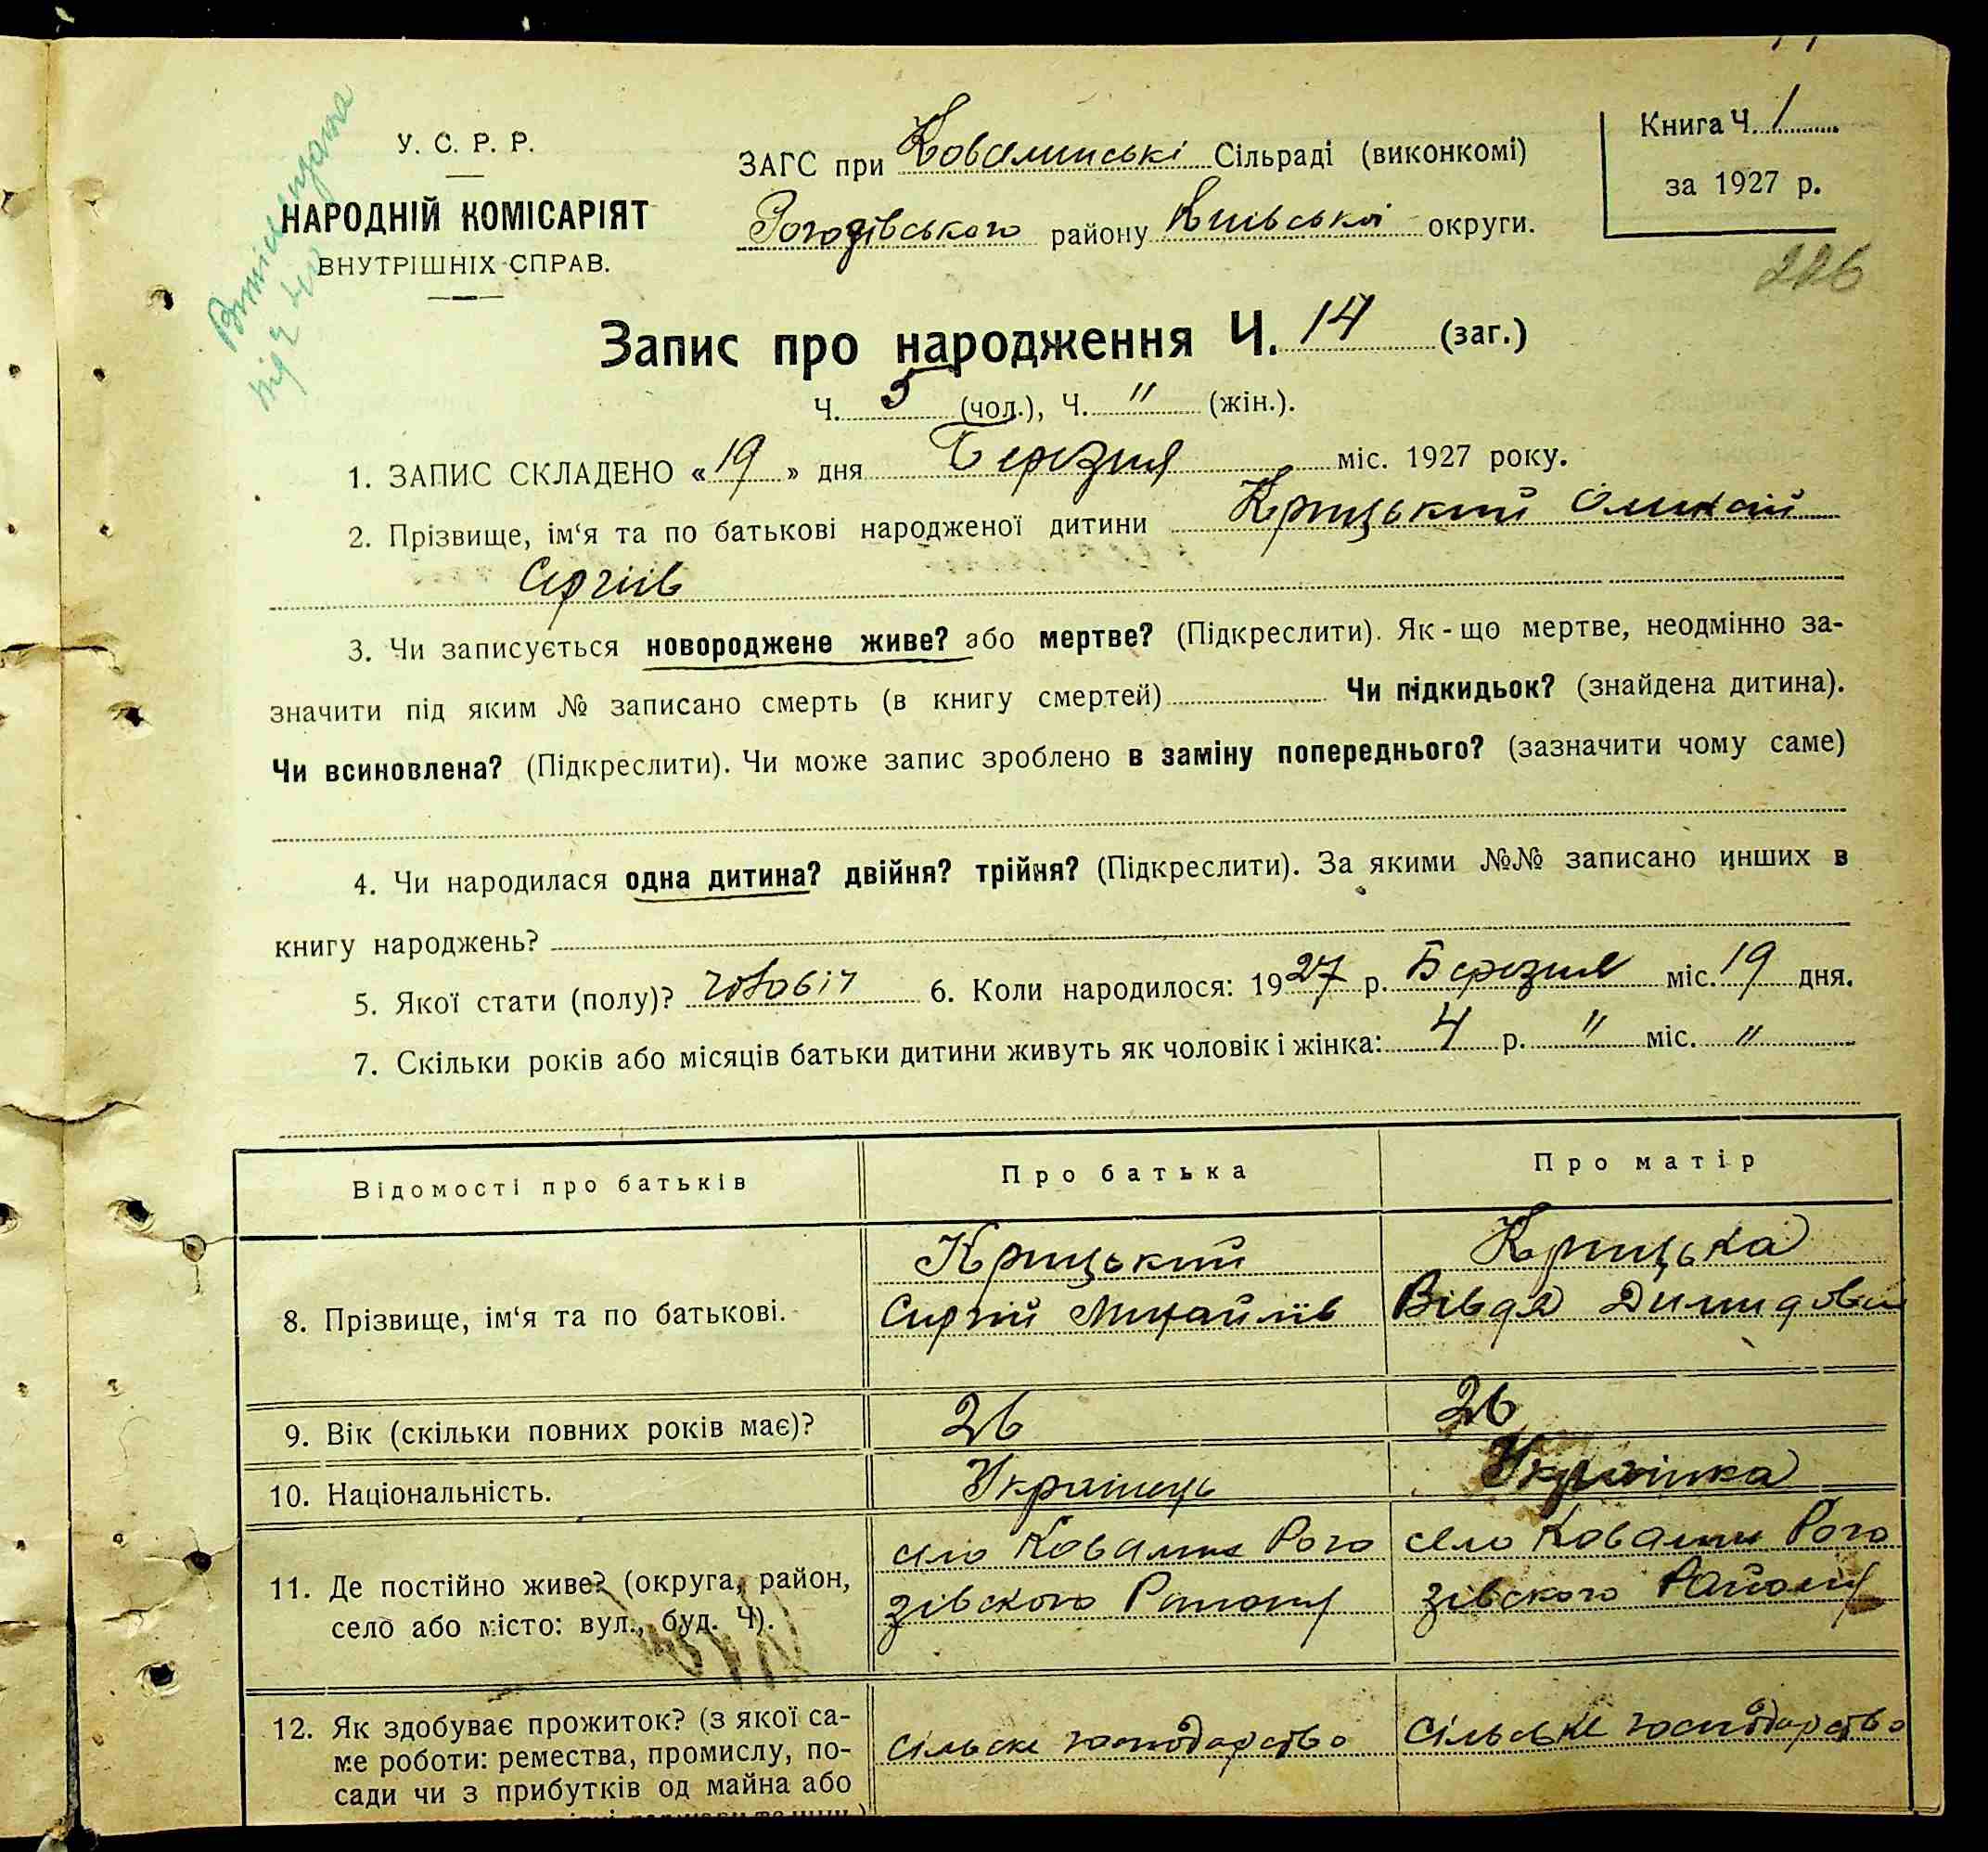 У. С. Р. Р.
НАРОДНІЙ КОМІСАРІЯТ
ВНУТРІШНІХ СПРАВ.
ЗАГС при Ковалинські Сільраді (виконкомі)
Рогозівського району Київської округи.
Книга Ч. 1
за 1927 р.
226
Запис про народження Ч. 14 (заг.)
Ч. 5 (чол.), Ч. " (жін.).
1. ЗАПИС СКЛАДЕНО «19» дня Березня міс. 1927 року.
2. Прізвище, ім'я та по батькові народженої дитини Крицький Олексій
Сергіів
3. Чи записується новороджене живе? або мертве? (Підкреслити). Як-що мертве, неодмінно за-
значити під яким № записано смерть (в книгу смертей) Чи підкидьок? (знайдена дитина).
Чи всиновлена? (Підкреслити). Чи може запис зроблено в заміну попереднього? (зазначити чому саме)
4. Чи народилася одна дитина? двійня? трійня? (Підкреслити). За якими №№ записано инших в
книгу народжень?
5. Якої стати (полу)? чоловіч 6. Коли народилося: 1927 р. Березня міс. 19 дня.
7. Скільки років або місяців батьки дитини живуть як чоловік і жінка: 4 р. " міс. "
Відомості про батьків Про батька Про матір
8. Прізвище, ім'я та по батькові. Крицький Крицька
Сергій Михайлів Вівдя Димидовна
9. Вік (скільки повних років має)? 26 26
10. Національність. Українець Українка
11. Де постійно живе? (округа, район,
село або місто: вул., буд. Ч).
село Ковалин Рого
зівского Району
село Ковалин Рого
зівского Району
12. Як здобуває прожиток? (з якої са-
ме роботи: ремества, промислу, по-
сади чи з прибутків од майна або
сільске господарство
Сільське господарство